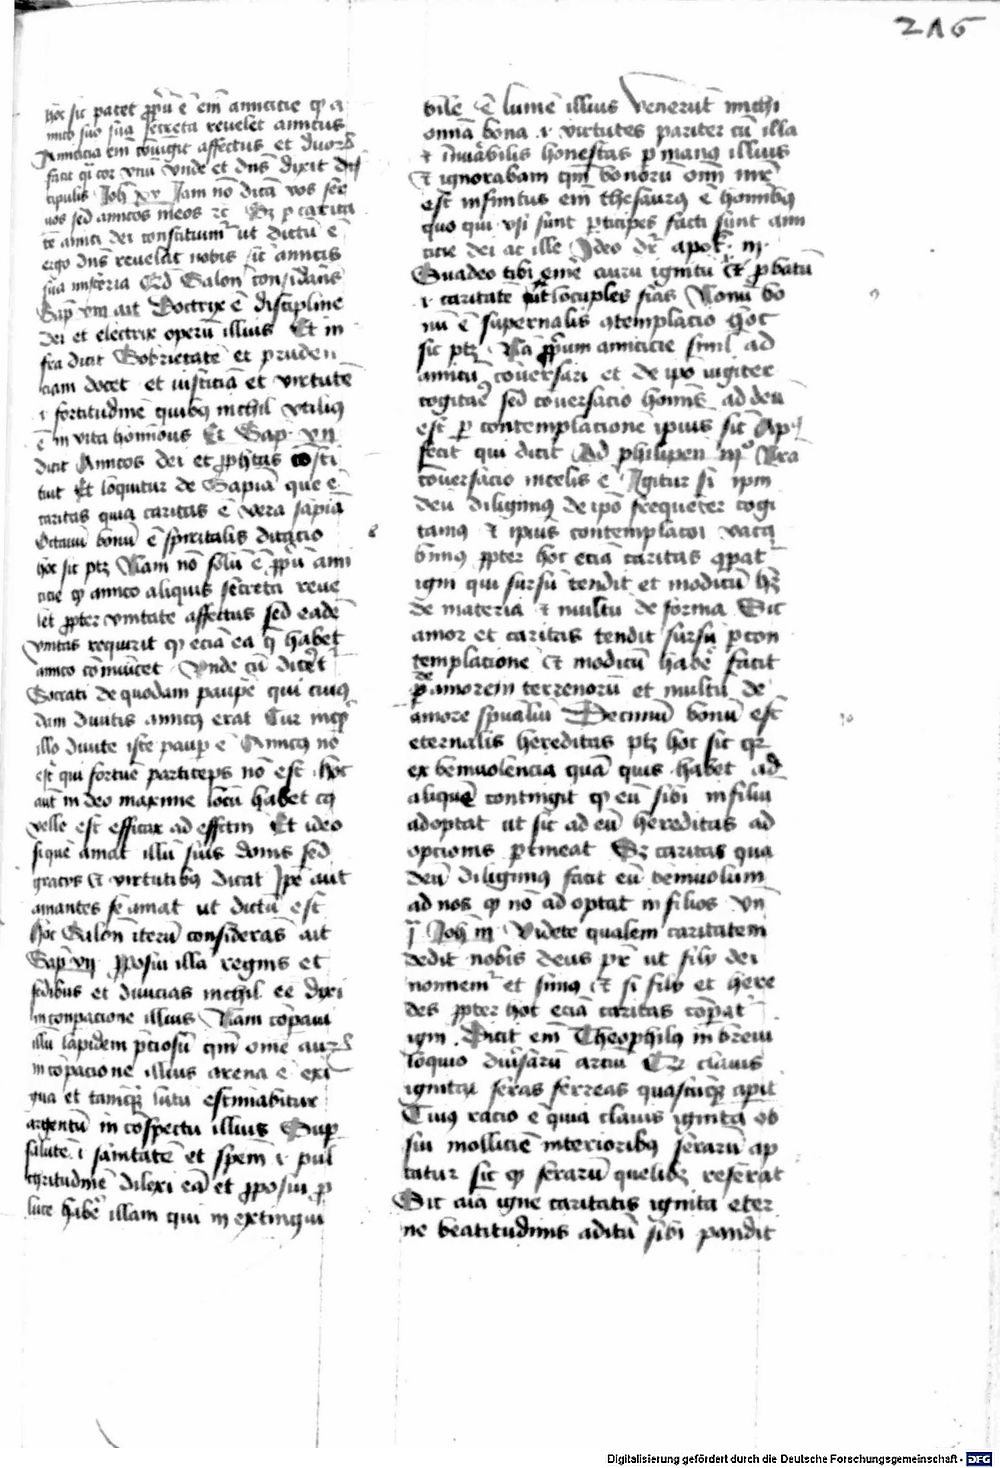 216
hoc sic patet ꝓpͥu ē em̄ amicicie qͥ a
mico suo sua secreta revelet amicus
Amicicia em̄ cōiungit affectus et duorꝝ
facit qͥ cor vnū vnde et dn̄s dixit dis
cipulis Joh̄ xv Jam nō dicā vos ser
uos sed amicos meos ⁊c Sꝫ ꝑ carita
tē amici dei constituimͬ ut dictū ē
ergo dn̄s reuelat nobis sic̄ amicis
sua misteria Qd Salon̄ considerās
Sap̄ viii ait Doctrix ē discipline
dei et electrix operū illius Et in
fra dicit Sobrietatē et pruden
ciam docet et iusticiā et virtutē
ı fortitudinē quibꝰ nichil vtiliꝰ
ē in vita hominibus Et Sap̄ vii
dicit Amicos dei et ꝓphetas costi
tuit Et loquitur de Sapiā que ē
caritas quia caritas ē vera sapiā
Octauū bonū ē spiritalis ditacio
hoc sic ptꝫ Nam nō solū ē ꝓpͥu ami
cicie qͥ amico aliquis secreta reue
let ꝓpter vnitatē affectus sed eadē
vnitas requirit qͥ eciā ea q̄ habet
amico cōmunicet Vnde cū diceret
Socrati de quodam paupē qui cuiꝰ
dam diuitis amicꝰ erat Cur inqͥ
illo diuite iste paup̄ ē Amicꝰ nō
est qui fortunē particeps nō est hoc
aūt in deo maxime locū habet cꝰ
velle est efficax ad effectū Et ideo
si quē amat illū suis donis sed
gracijs et virtutibꝰ ditat Ipē aūt
amantes se amat ut dictū est
hoc Salon̄ iterū considerās ait
Sap̄ vij ꝓposui illa regnis et
sedibus et diuicias nichil eē dixi
in conpacione illius Nam cōpaui
illi lapidem p̄ciosū qm̄ omē aurꝝ
in cōpacione illius arena ē exi
gua et tamqͣ lutū estimabitur
argentū in cōspectu illius Sup̄
salutē ı sanitatē et spem̄ ı pul
critudinē dilexi eā et ꝓposui ꝓ
luce habē illam qui in extingui
bile ē lumē illius Venerūt michi
omīa bona ı virtutes pariter cū illa
et īnuābilis honestas ꝑ manꝰ illius
Et ignorabam qm̄ bonorū oīm mr̄
est infinitus em̄ thesaurꝰ ē hominibꝰ
quo qui vsi sunt ꝑticipes facti sunt ami
cicie dei ac ille Ideo dr̄ apok̄ iij
Suadeo tibi emē aurū ignitū et ꝓbatū
ı caritatē ut locuples fias Nonū bo
nū ē supernalis ꝯtemplacio Hoc
sic ptꝫ Na ꝓpͥum amicicie simͥl ad
amicū cōuersari et de ipō iugiter
cogitaē sed cōuersacio homīs ad deū
est ꝑ contemplacionē ipius sic̄ Ap̄
fecit qui dicit Ad philipen iijͦ Nra
cōuersacio in celis ē Igitur si ipm̄
deū diligimꝰ de ipō frequēter cogi
tamꝰ et ipius contemplacōi vacā
bimꝰ ꝓpter hoc eciā caritas cōpat̄
igni qui sursū tendit et modicū hꝫ
de materia et multū de forma Sic
amor et caritas tendit sursū ꝑ con
templacionē et modicū habē facit
de
ꝑ amorem terrenorū et multū de
amore spualiū Decimū bonū est
eternalis hereditas ptꝫ hoc sic qꝛ
ex beniuolencia quā quis habet ad
aliquē contingit qͥ eū sibi in filiū
adoptat ut sic ad eū hereditas ad
opcionis ꝑtineat Sꝫ caritas qua
deū diligimꝰ facit eū beniuolum
ad nos qͥ nō adoptat in filios Vn̄
j Joh̄ iij Videte qualem caritatem
dedit nobis deus pr̄ ut filij dei
nominemͬ et simꝰ et si filij et here
des ꝓpter hoc eciā caritas cōpat̄
igni Dicit em̄ Theophilꝰ in breui
loquio diuisarū arciū Qꝛ clauis
ignita feras ferreas quascūqꝫ apit
Cuiꝰ racio ē quia clauis ignita ob
sui molliciē interioribꝰ serarū ap
tatur sic qͥ serarū quelibꝫ reserat
Sic aīa igne caritatis ignita eter
ne beatitudinis aditū sibi pandit
8
9
10
Digitalisierung gefördert durch die Deutsche Forschungsgemeinschaft - DFG